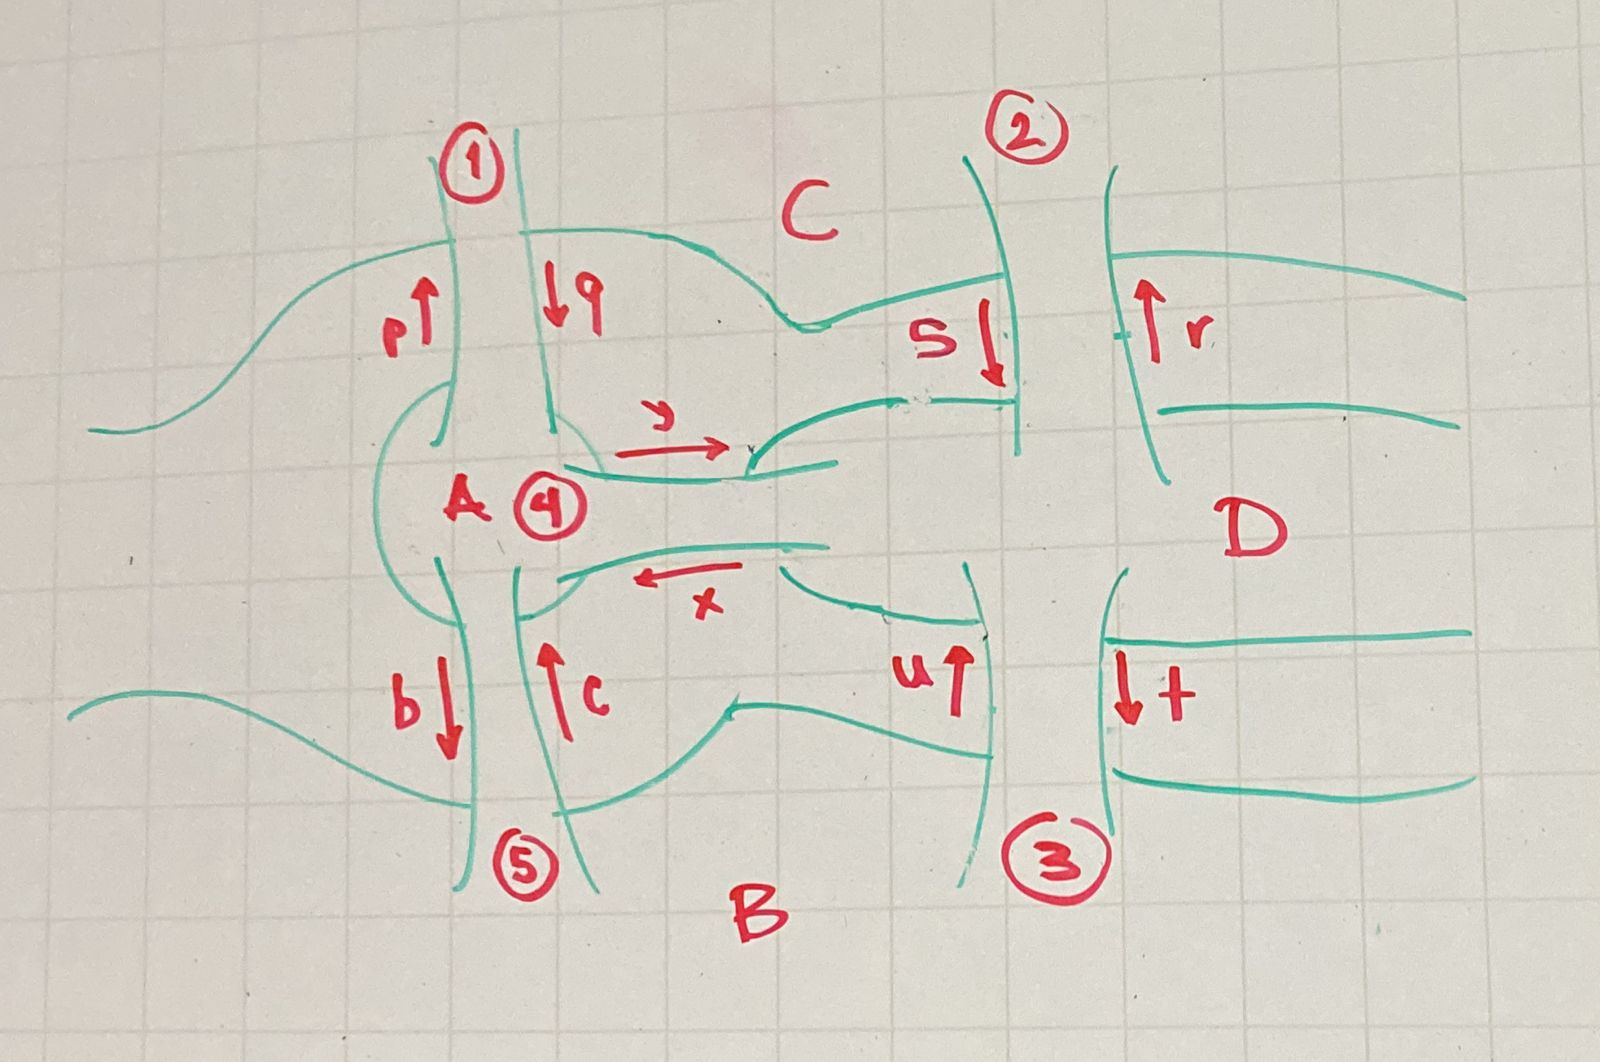 1
2
C
p
q
S
r
y
A
4
D
x
b
c
u
t
5
3
B